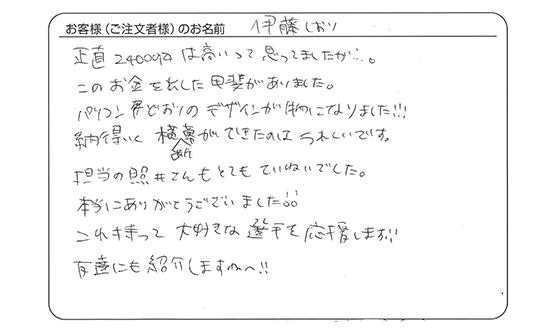 お客様(ご注文者様)のお名前 伊藤しおり
正直24000円は高いって思ってましたが…。
このお金を出した甲斐がありました。
パソコン屋どおりのデザインが物になりました!!!
納得いく横幕ができたのはうれしいです。
担当の照井さんもとてもていねいでした。
本当にありがとうございました!!
これ持って大好きな選手を応援します!!
友達にも紹介しますね〜!!